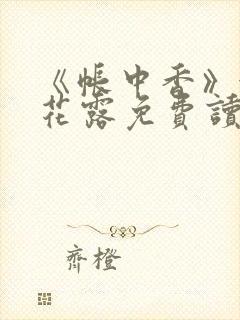 《帳中香》
花露免費讀
齊橙